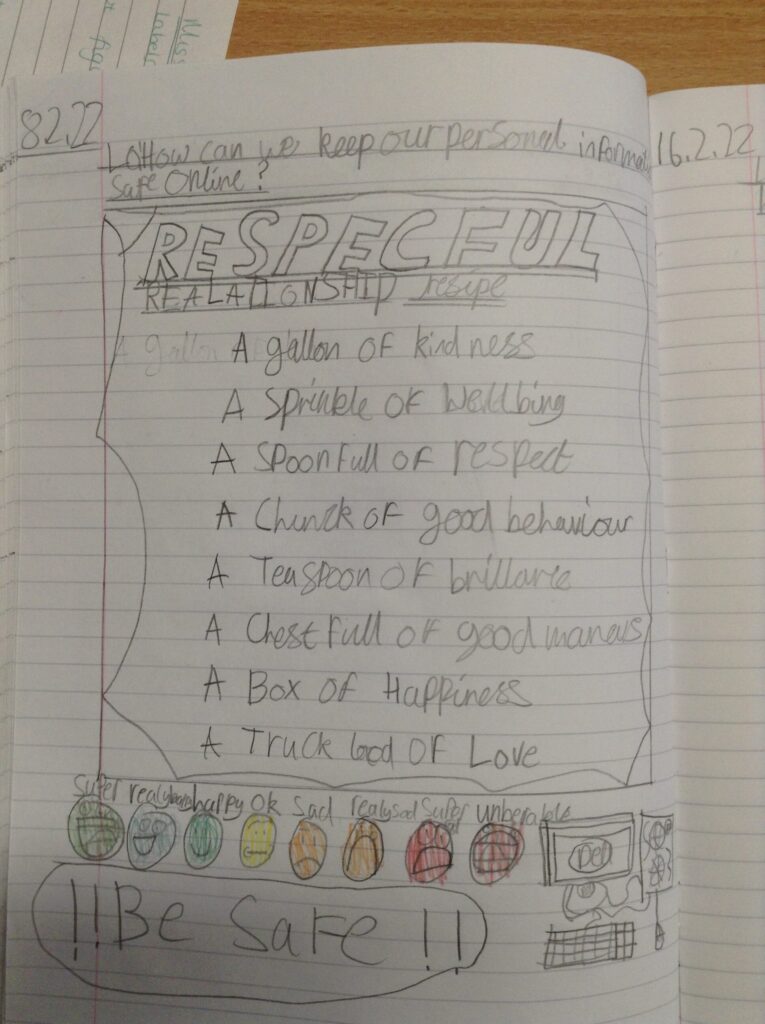 Miss
labels
82.22
LO How can we keep our personal informat
safe Online?
16.2.22
RESPECFUL
REALATIONSHIP resipe
A gallon
A gallon of kindness
A Sprinkle of Wellbing
A Spoonfull of respect
A Chunck of good behaviour
A Teaspoon of brillance
A Chest full of good maners
A Box of Happiness
A Truck load of Love
Super realyhappy happy ok sad realysad Super sad unberable
Dell
!!Be safe!!